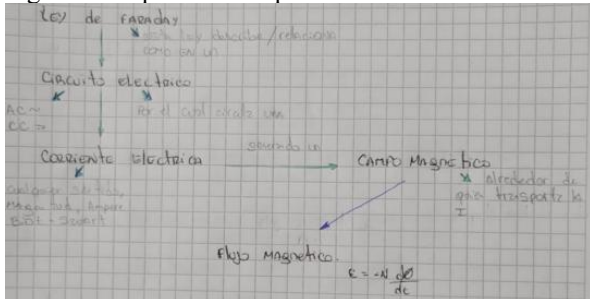 Ley de FARADAY
esta ley describe / relaciona
como en un
Circuito electrico
AC ~
CC =
Por el cual circula una
Corriente Electrica
generando un
CAMPO Magnetico
alrededor de
que transporta la
I
Ampere
Biot - Savart
Flujo Magnetico.
ε = -N dΦ
dt